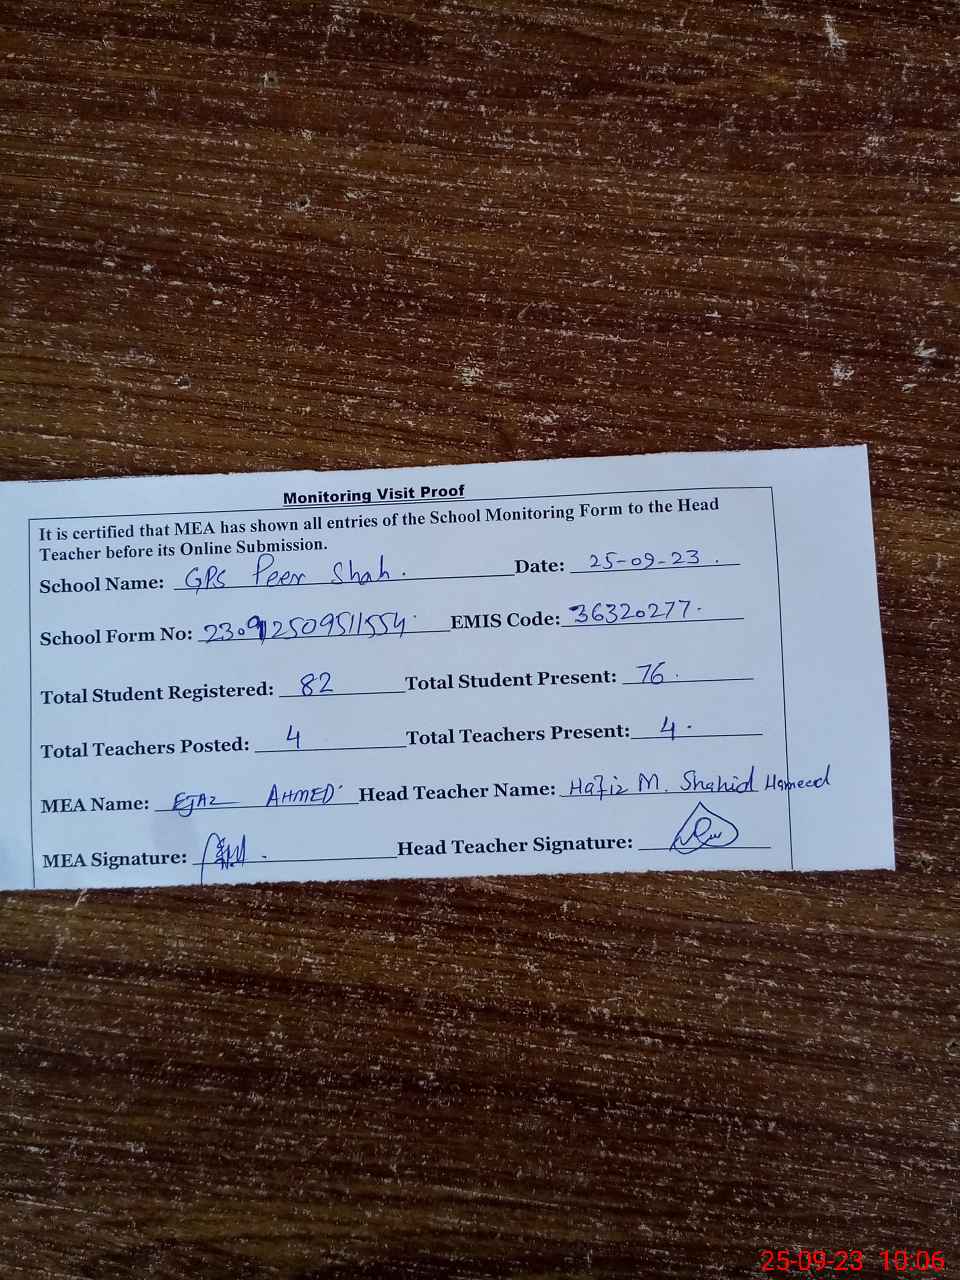 Monitoring Visit Proof
It is certified that MEA has shown all entries of the School Monitoring Form to the Head
Teacher before its Online Submission.
School Name: GPS Peer Shah. Date: 25-09-23.
School Form No: 230912509511554 EMIS Code: 36320277.
Total Student Registered: 82 Total Student Present: 76.
Total Teachers Posted: 4 Total Teachers Present: 4.
MEA Name: EJAZ AHMED Head Teacher Name: Hafiz M. Shahid Hameed
MEA Signature: Head Teacher Signature:
25-09-23 10:06